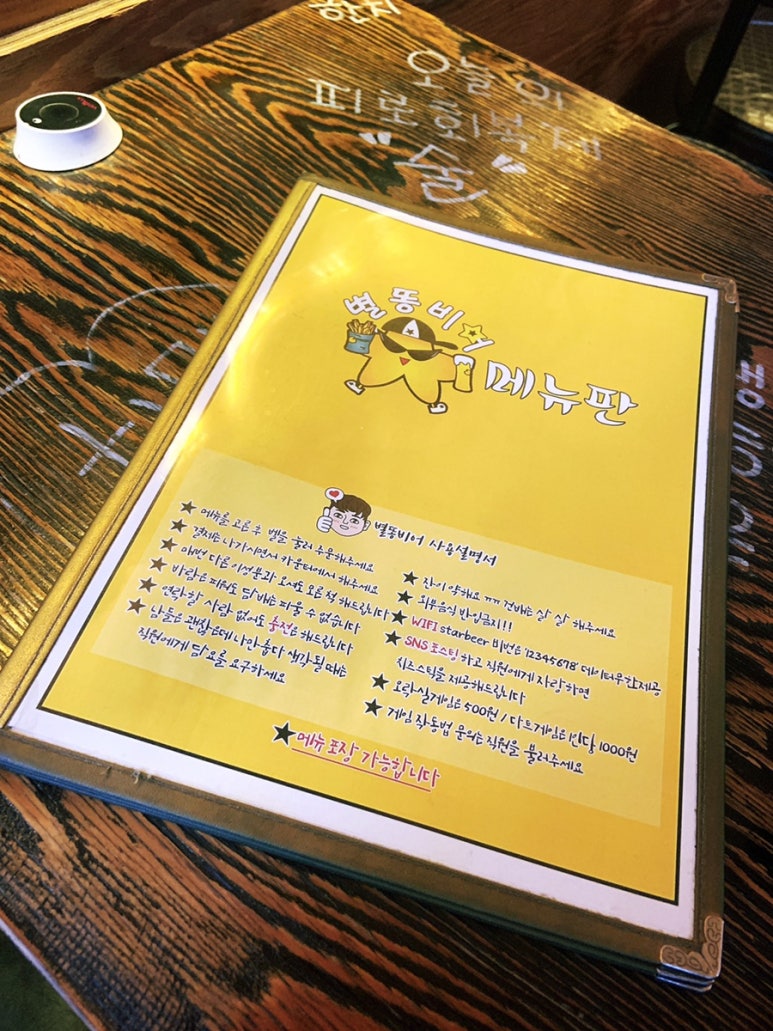 오늘의
피로회복제
"술"
별똥비어
메뉴판
별똥비어 사용설명서
★ 메뉴를 고른 후 벨을 눌러 주문해주세요
★ 결제는 나가시면서 카운터에서 해주세요
★ 매번 다른 이성분과 오셔도 모른 척 해드립니다
★ 바람은 피워도 담배는 피울 수 없습니다
★ 연락할 사람 없어도 충전은 해드립니다
★ 남들은 괜찮은데 나만 춥다 생각될 때는
직원에게 담요를 요구하세요
★ 잔이 약해요 ㅠㅠ 건배는 살살 해주세요
★ 외부음식 반입금지!!
★ WIFI starbeer 비번은 12345678 데이터무한제공
★ SNS 포스팅 하고 직원에게 자랑하면
치즈스틱을 제공해드립니다
★ 오락실게임은 500원 / 다트게임은 인당 1000원
★ 게임 작동법 문의는 직원을 불러주세요
★ 메뉴 포장 가능합니다